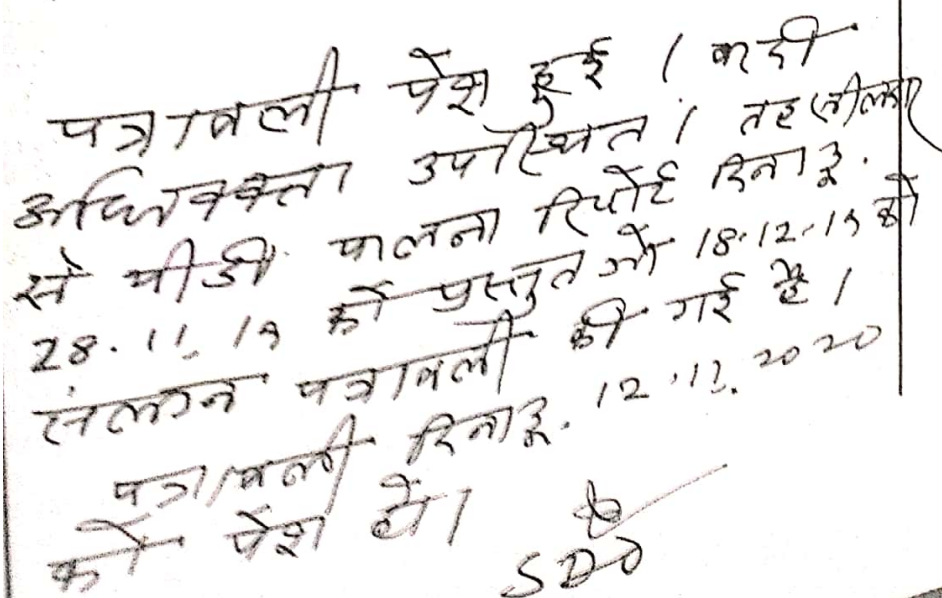 पत्रावली पेश हुई । वादी
अधिवक्ता उपस्थित । तहसीलदार
से पी.डी. पालना रिपोर्ट दिनांक
28.11.19 को प्रस्तुत जो 18.12.19 को
संलग्न पत्रावली की गई है ।
पत्रावली दिनांक 12.11.2020
को पेश हो ।
SDO